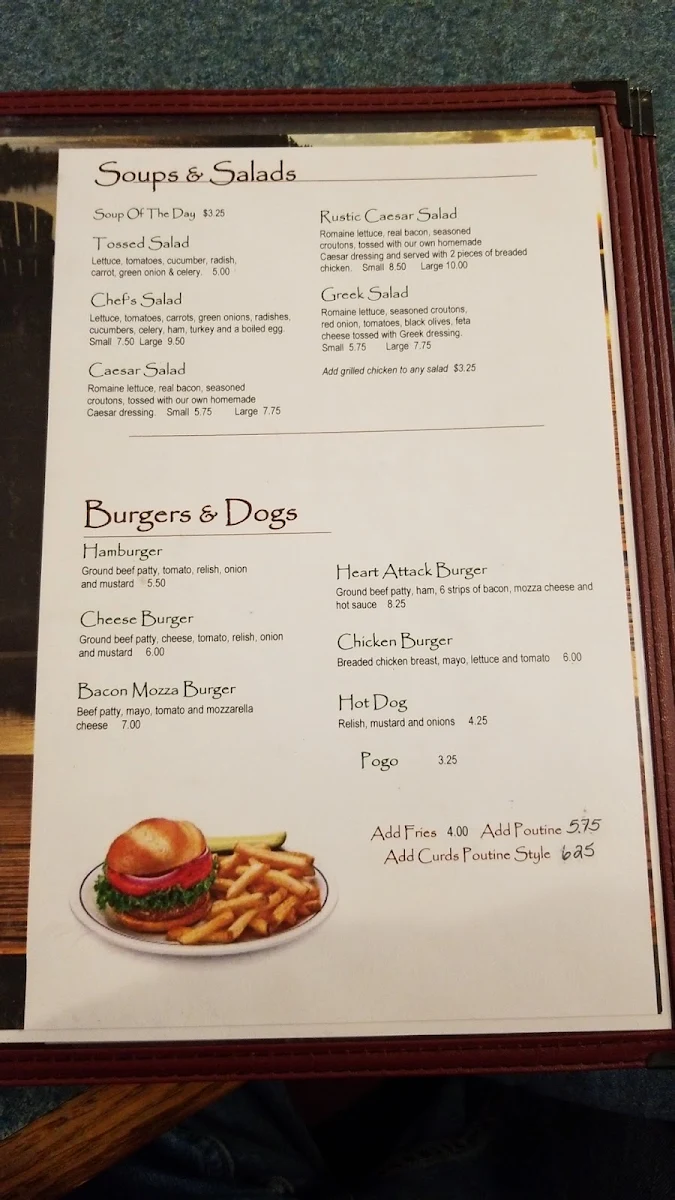 Soups & Salads
Soup Of The Day $3.25
Tossed Salad
Lettuce, tomatoes, cucumber, radish,
carrot, green onion & celery. 5.00
Chef's Salad
Lettuce, tomatoes, carrots, green onions, radishes,
cucumbers, celery, ham, turkey and a boiled egg.
Small 7.50 Large 9.50
Caesar Salad
Romaine lettuce, real bacon, seasoned
croutons, tossed with our own homemade
Caesar dressing. Small 5.75 Large 7.75
Rustic Caesar Salad
Romaine lettuce, real bacon, seasoned
croutons, tossed with our own homemade
Caesar dressing and served with 2 pieces of breaded
chicken. Small 8.50 Large 10.00
Greek Salad
Romaine lettuce, seasoned croutons,
red onion, tomatoes, black olives, feta
cheese tossed with Greek dressing.
Small 5.75 Large 7.75
Add grilled chicken to any salad $3.25
Burgers & Dogs
Hamburger
Ground beef patty, tomato, relish, onion
and mustard 5.50
Cheese Burger
Ground beef patty, cheese, tomato, relish, onion
and mustard 6.00
Bacon Mozza Burger
Beef patty, mayo, tomato and mozzarella
cheese 7.00
Heart Attack Burger
Ground beef patty, ham, 6 strips of bacon, mozza cheese and
hot sauce 8.25
Chicken Burger
Breaded chicken breast, mayo, lettuce and tomato 6.00
Hot Dog
Relish, mustard and onions 4.25
Pogo 3.25
Add Fries 4.00 Add Poutine 5.75
Add Curds Poutine Style 625